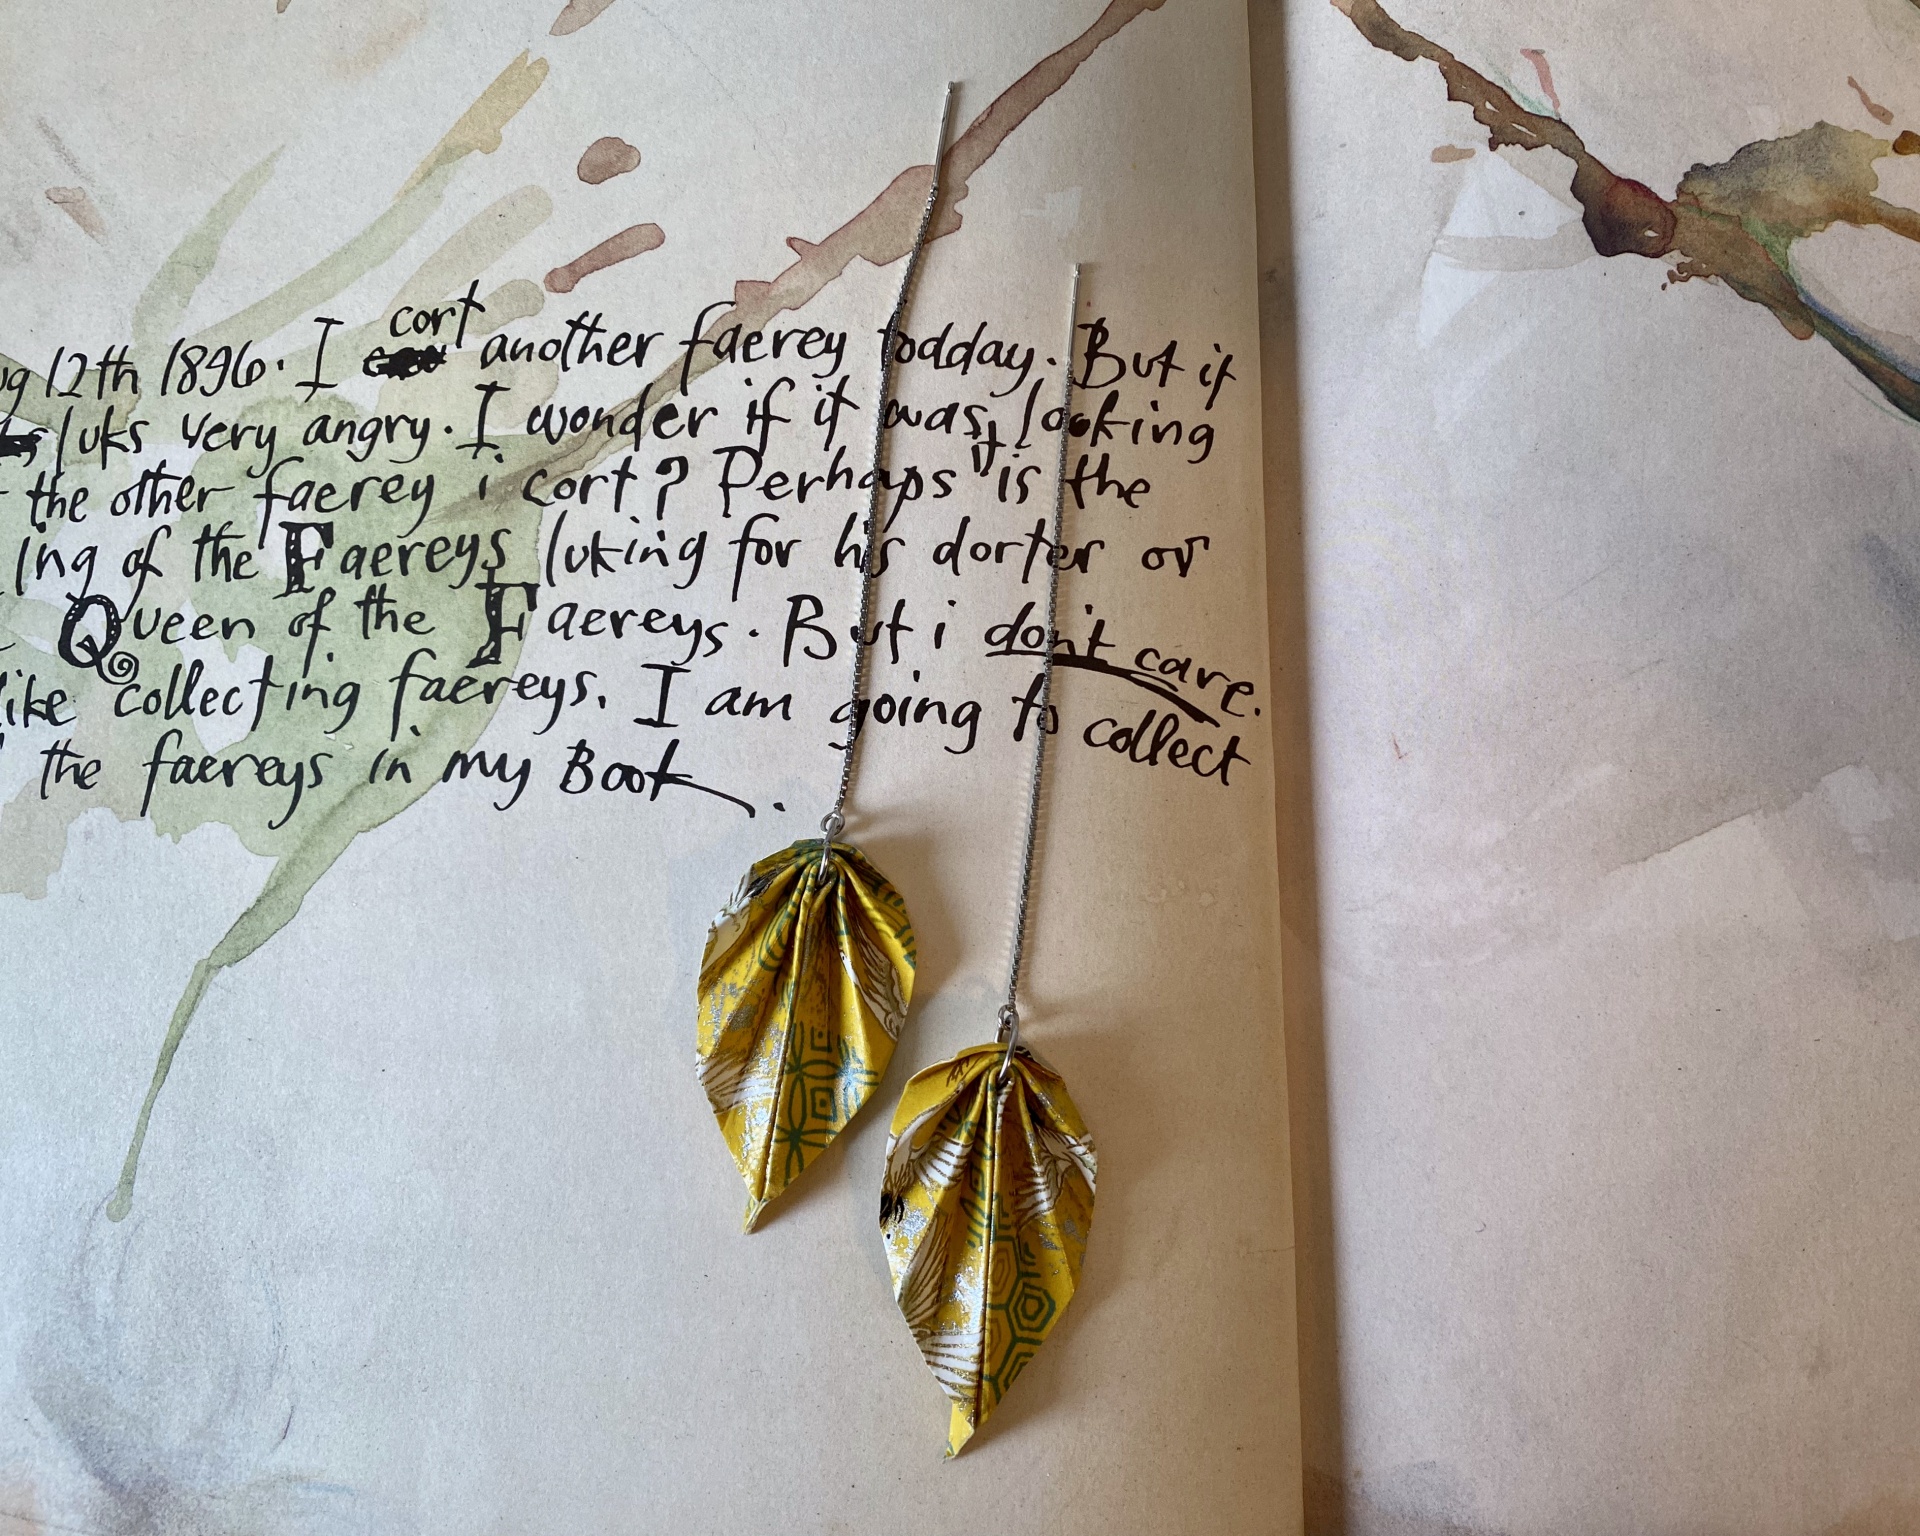 cort
ug 12th 1896. I another faerey todday. But it
luks very angry. I wonder if it was looking
the other faerey i cort? Perhaps it is the
ing of the Faereys luking for his dorter or
Queen of the Faereys. But i don't care.
like collecting faereys. I am going to collect
the faereys in my Book.